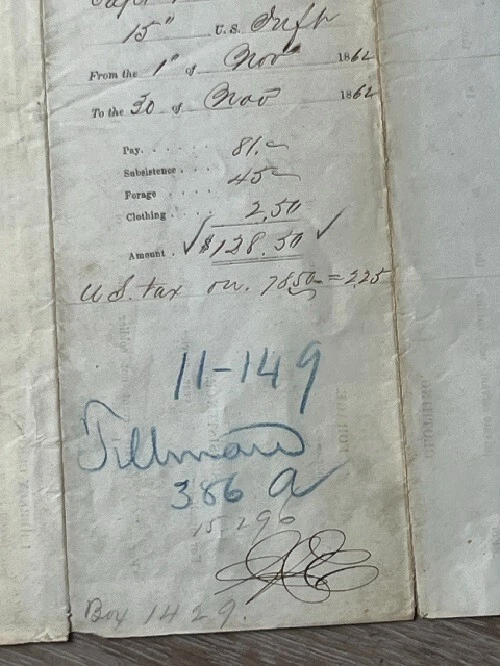 15" U.S. Infy
From the 1" of Nov 1862
To the 30 of Nov 1862
Pay. 81.
Subsistence. 45
Forage
Clothing 2.50
Amount. $128.50
U.S. tax on. 78.50 = 2.25
11-149
Tillman
386 a
15296
Box 1429.